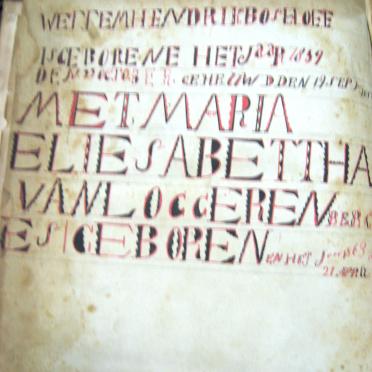 WELLEM HENDRIK BOSHOFF
IS GEBORENE HET JAAR 1839
DE OCTOBER GETRUWD DEN 19 SEP
MET MARIA
ELIESABETTHA
VAN LOGGERENBERG
ES GEBOREN EN HET
21 APRIL